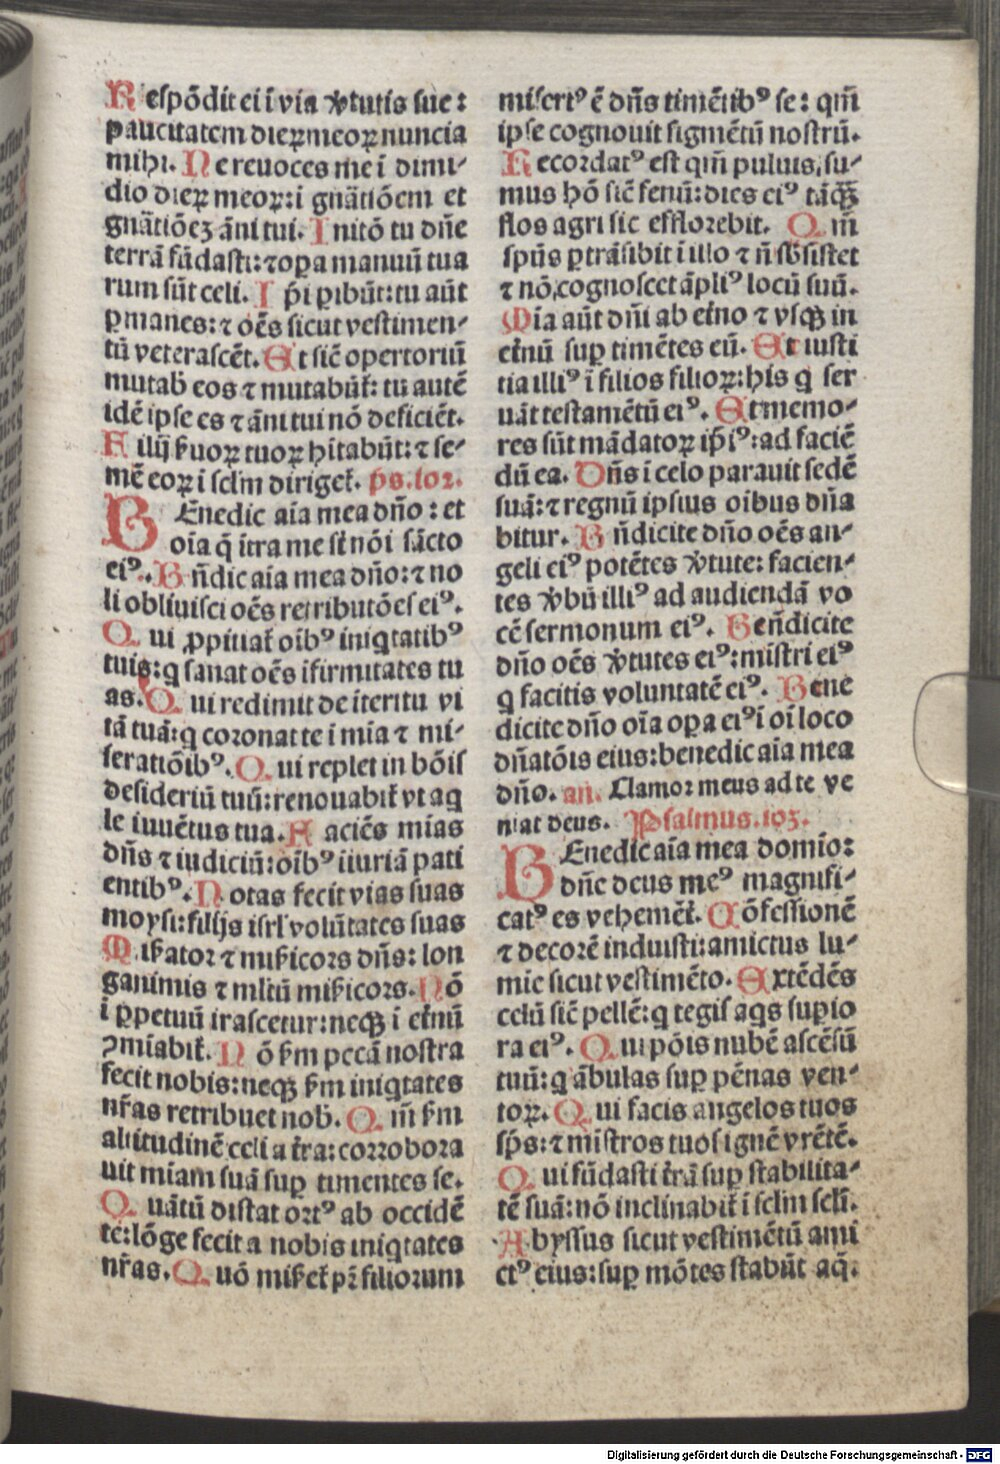 Respõdit ei ĩ via v̾tutis sue:
paucitatem dieꝝ meoꝝ nuncia
mihi. Ne reuoces me ĩ dimi-
dio dieꝝ meoꝝ: i gnãtiõem et
gnãtiõeʒ ãni tui. Initõ tu dñe
terrã fũdasti: ⁊ oꝑa manuũ tua
rum sũt celi. Ip̃i ꝑibũt: tu aũt
ꝑmanes: ⁊ oẽs sicut vestimen-
tũ veterascẽt. Et sic̃ opertoriũ
mutab̃ eos ⁊ mutabũt̃: tu autẽ
idẽ ipse es ⁊ ãni tui nõ deficiẽt.
Filij ẜuoꝝ tuoꝝ hitabũt: ⁊ se-
mẽ eoꝝ i sclm̃ diriget̃. ps. 102.
BEnedic aĩa mea dño: et
oĩa q̃ ĩtra me sũt nõi sãcto
eiꝰ. Bñdic aĩa mea dño: ⁊ no
li obliuisci oẽs retributões eiꝰ.
Qui ꝓpitiat̃ oĩbꝰ iniqtatibꝰ
tuis: q sanat oẽs ĩfirmitates tu
as. Qui redimit de ĩteritu vi
tã tuã: q coronat te i mĩa ⁊ mi-
seratiõibꝰ. Qui replet in bõis
desideriũ tuũ: renouabit̃ vt aq
le iuuẽtus tua. Faciẽs mĩas
dñs ⁊ iudiciũ: oĩbꝰ iiuriã pati
entibꝰ. Notas fecit vias suas
moysi: filijs isrl' volũtates suas
Miẜator ⁊ miẜicors dñs: lon
ganimis ⁊ mltũ miẜicors. Nõ
ĩ ꝑpetuũ irascetur: neqꝫ i et̃nũ
ꝯmĩabit̃. Nõ ẜm pccã nostra
fecit nobis: neqꝫ ẜm iniqtates
nr̃as retribuet nob̃. Qm̃ ẜm
altitudinẽ celi a t̃ra: corrobora
uit miam suã suꝑ timentes se.
Quãtũ distat ortꝰ ab occidẽ
te: lõge fecit a nobis iniqtates
nr̃as. Quõ miẜet̃ pr̃ filiorum
misertꝰ ẽ dñs timẽtibꝰ se: qm̃
ipse cognouit figmẽtũ nostrũ.
Recordatꝰ est qm̃ puluis su-
mus hõ sic̃ fenũ: dies eiꝰ tãqꝫ
flos agri sic efflorebit. Qm̃
spũs ꝑtrãsibit ĩ illo ⁊ ñ sb̃sistet
⁊ nõ cognoscet ãpliꝰ locũ suũ.
Mĩa aũt dñi ab et̃no ⁊ vsqꝫ in
et̃nũ suꝑ timẽtes eũ. Et iusti
tia illiꝰ ĩ filios filioꝝ: his q ser
uãt testamẽtũ eiꝰ. Et memo-
res sũt mãdatoꝝ ip̃iꝰ: ad faciẽ
dũ ea. Dñs i celo parauit sedẽ
suã: ⁊ regnũ ipsius oĩbus dña
bitur. Bñdicite dño oẽs an-
geli eiꝰ potẽtes v̾tute: facien-
tes v̾bũ illiꝰ ad audiendã vo
cẽ sermonum eiꝰ. Beñdicite
dño oẽs v̾tutes eiꝰ: mĩstri eiꝰ
q facitis voluntatẽ eiꝰ. Bene
dicite dño oĩa oꝑa eiꝰ ĩ oĩ loco
dñatõis eius: benedic aĩa mea
dño. añ. Clamor meus ad te ve
niat deus. Psalmus. 103.
BEnedic aĩa mea domĩo:
dñe deus meꝰ magnifi-
catꝰ es vehemẽt̃. Cõfessionẽ
⁊ decorẽ induisti: amictus lu-
mie sicut vestimẽto. Extẽdẽs
celũ sic̃ pellẽ: q tegis aqs suꝑio
ra eiꝰ. Qui põis nubẽ ascẽsũ
tuũ: q ãbulas suꝑ pẽnas ven-
toꝝ. Qui facis angelos tuos
sp̃s: ⁊ mĩstros tuos ignẽ vrẽtẽ.
Qui fũdasti t̃rã suꝑ stabilita-
tẽ suã: nõ inclinabit̃ ĩ sclm̃ scli̇̃.
Abyssus sicut vestimẽtũ ami
ctꝰ eius: suꝑ mõtes stabũt aq̃.
Digitalisierung gefördert durch die Deutsche Forschungsgemeinschaft - DFG